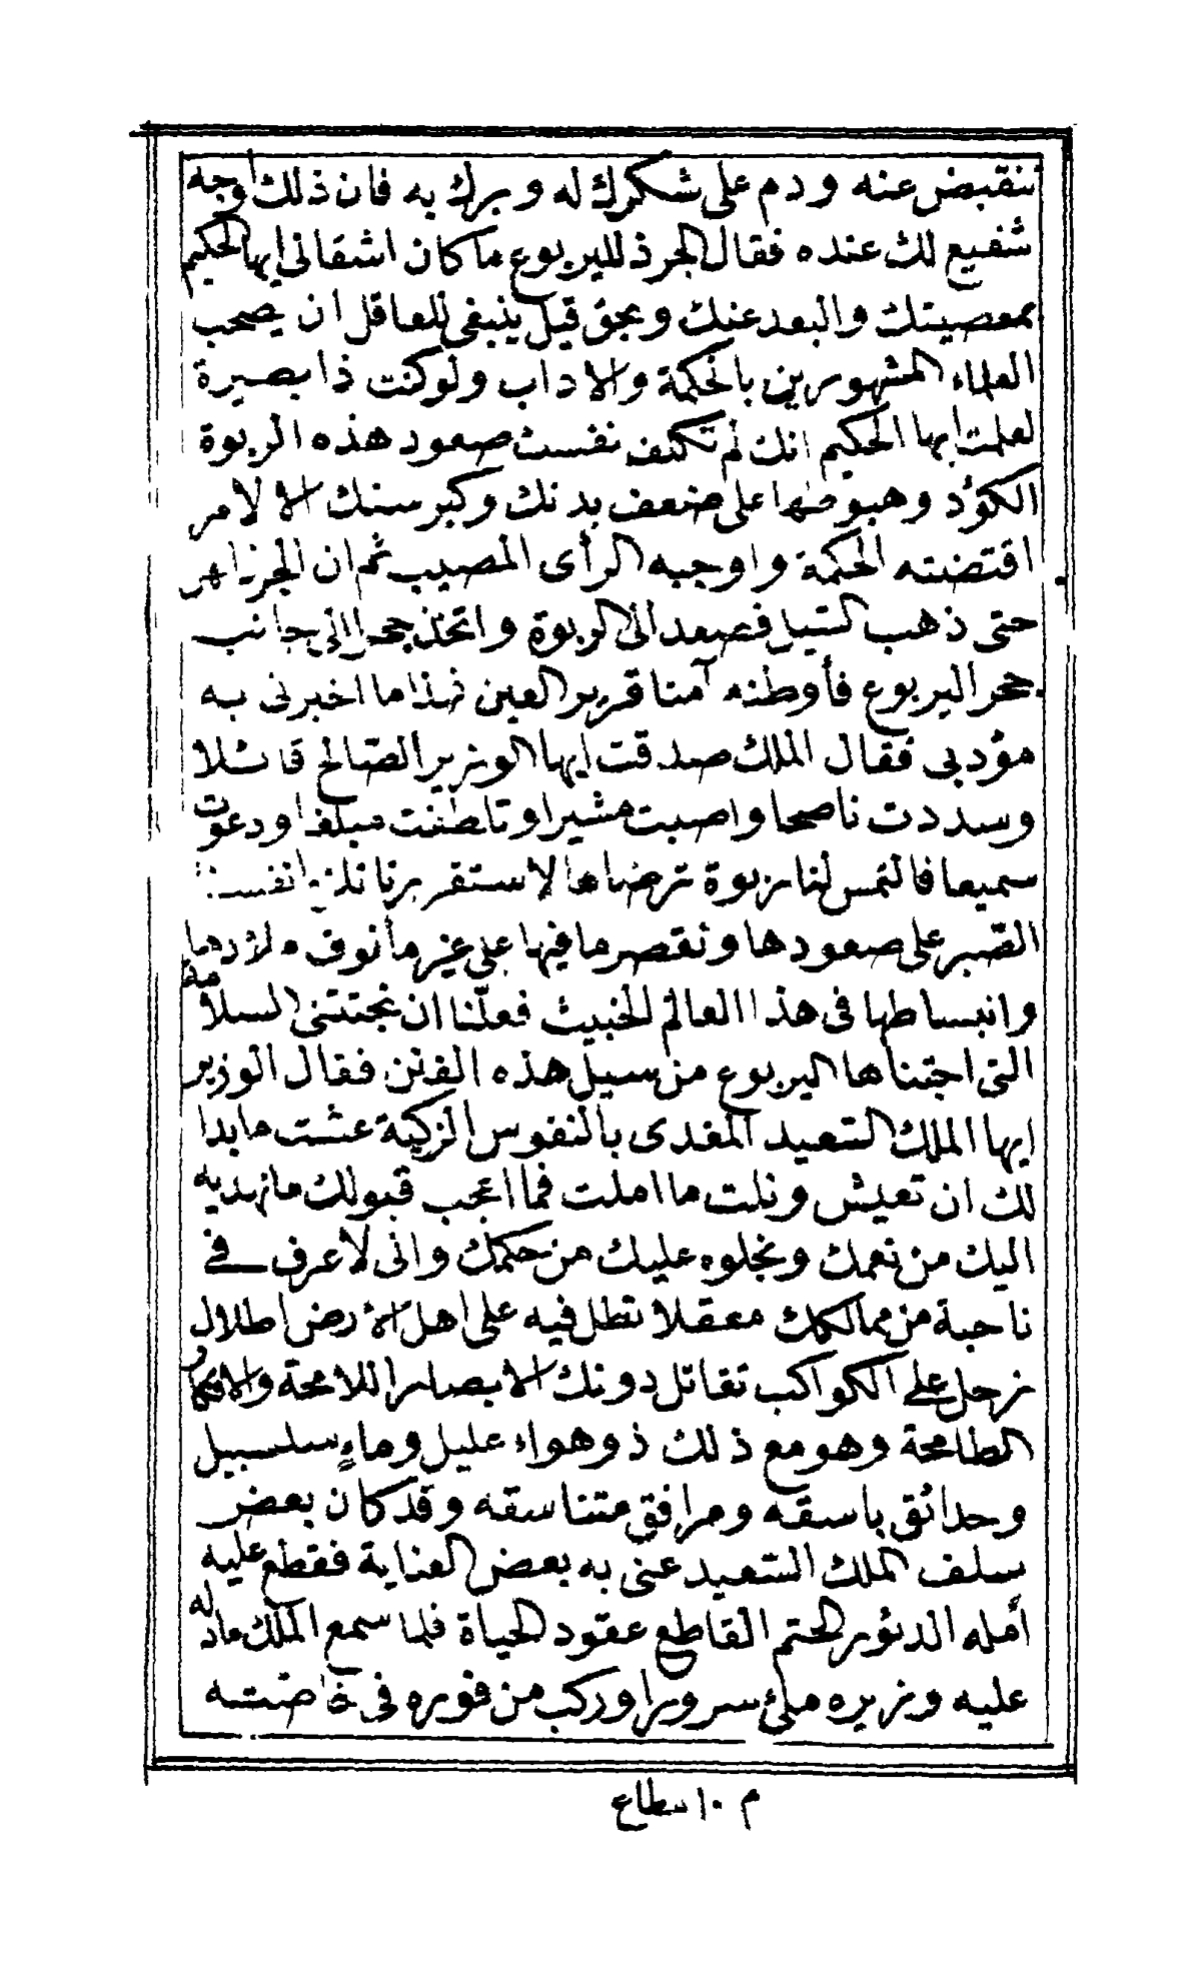 تنقبض عنه ودم على شكرك له وبرك به فان ذلك اوجه
شفيع لك عنده فقال الجرذ لليربوع ما كان اشقانى ايها الحكيم
بمعصيتك والبعد عنك وبحق قيل ينبغى للعاقل ان يصحب
العلماء المشهورين بالحكمة والاداب ولو كنت ذا بصيرة
لعلمت ايها الحكيم انك لم تكلف نفسك صعود هذه الربوة
الكؤد وهبوطها على ضعف بدنك وكبر سنك الا لامر
اقتضته الحكمة واوجبه الرأى المصيب ثم ان الجرذ
حتى ذهب السيل فصعد الى الربوة واتخذ جحرا الى جانب
جحر اليربوع فأوطنه آمنا قرير العين فهذا ما اخبرنى به
مؤدبى فقال الملك صدقت ايها الوزير الصّالح قائلا
وسددت ناصحا واصبت مشيرا وتلطفت مبلغا ودعوت
سميعا فالتمس لنا ربوة نرضاها لاستقرارنا
الصّبر على صعودها ونقصر ما فيها على غير مأنوف
وانبساطها فى هذا العالم الخبيث فعلّنا ان نجتنى السلامة
التى اجتناها اليربوع من سيل هذه الفتن فقال الوزير
ايها الملك السّعيد المفدى بالنفوس الزكيّة عشت ما بدا
لك ان تعيش ونلت ما املت فما اعجب قبولك ما نهديه
اليك من نعمك ونجلوه عليك من حكمك وانى لاعرف فى
ناحية من ممالكك معقلا تطل فيه على اهل الارض اطلال
زحل على الكواكب تقاتل دونك الابصار اللامحة والافكار
الطامحة وهو مع ذلك ذو هواء عليل وماءٍ سلسبيل
وحدائق باسقه ومرافق متناسقه وقد كان بعض
سلف الملك السّعيد عنى به بعض العناية فقطع عليه
أمله الدؤر الحتم القاطع عقود الحياة فلما سمع الملك ما دله
عليه وزيره ملئ سرورا وركب من فوره فى خاصّته
م ١٠ سطاع